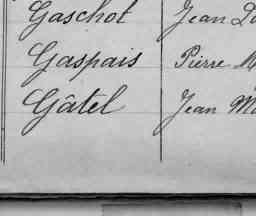 Gaschot Jean
Gaspais Pierre
Gâtel Jean